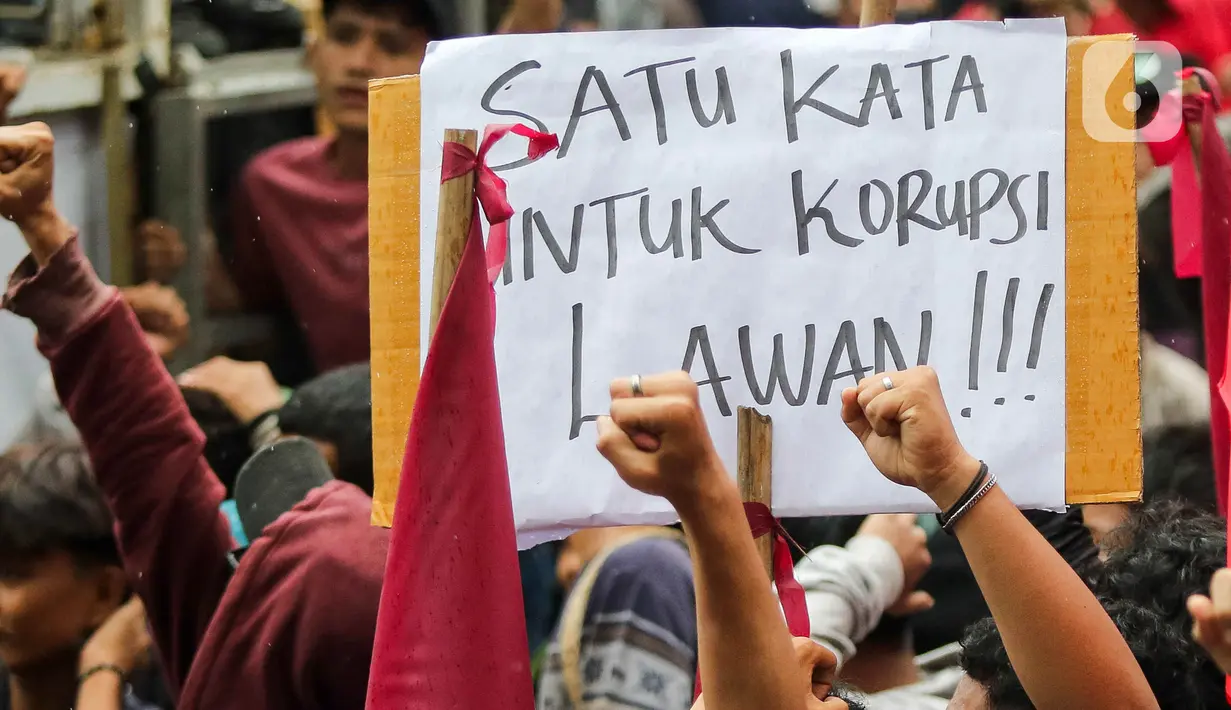 SATU KATA
UNTUK KORUPSI
LAWAN!!!
6